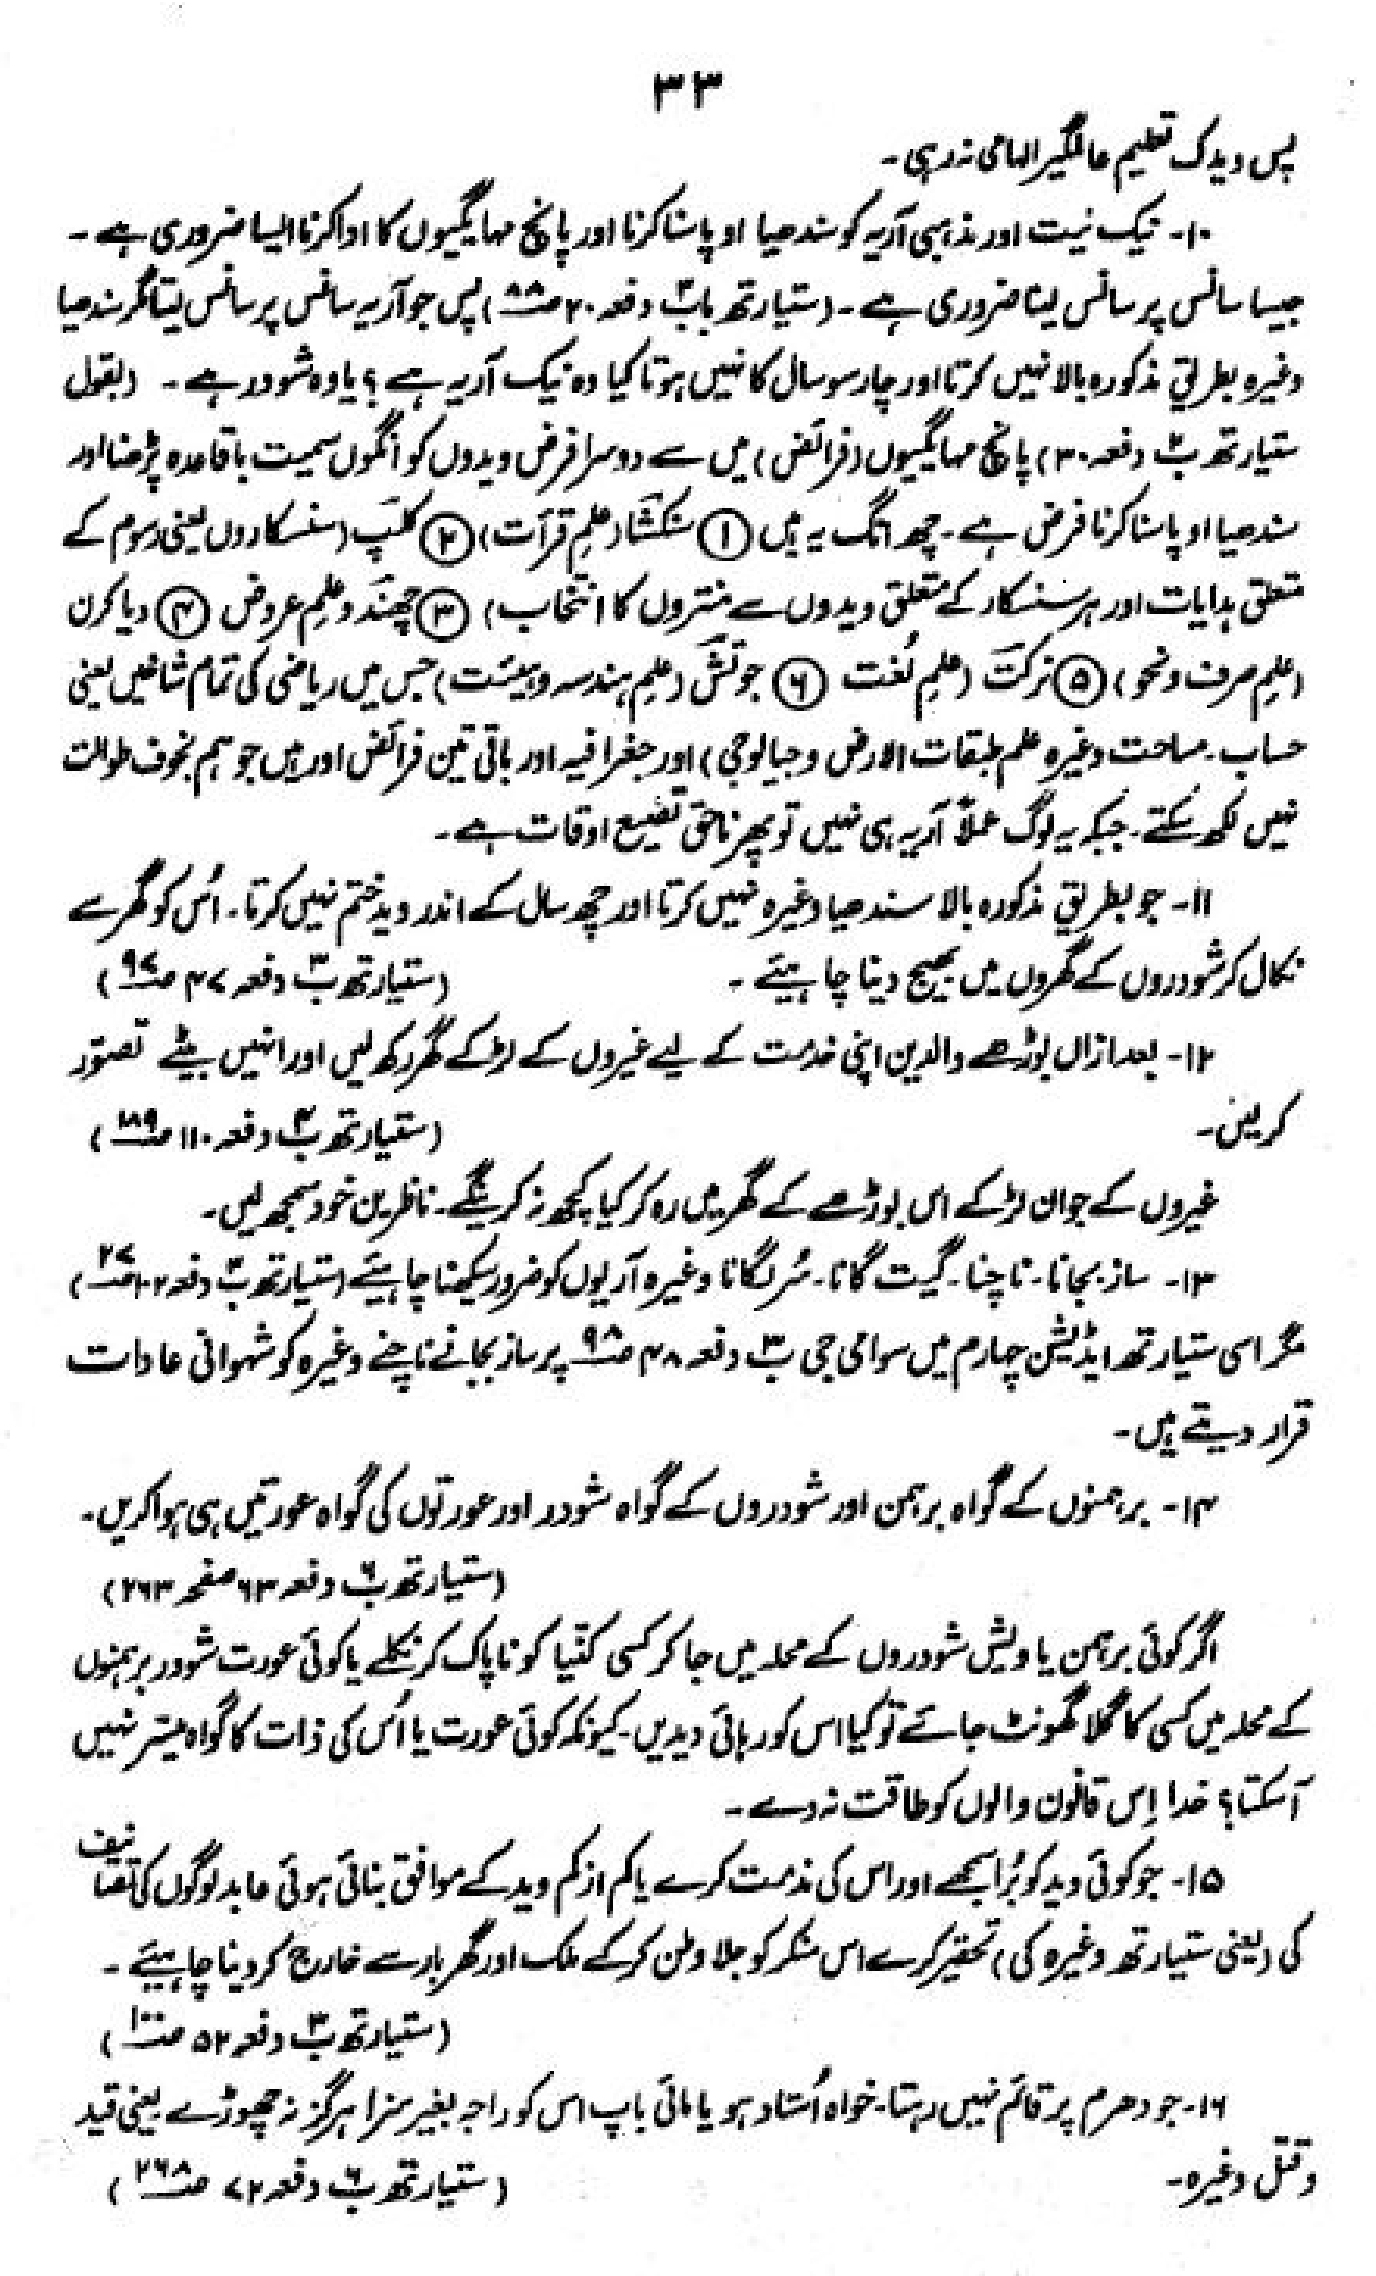 ۳۳
پس ویدک تعلیم عالمگیر الہامی نہ رہی۔
۱۰۔ نیک نیت اور مذہبی آریہ کو سندھیا اوپاسنا کرنا اور پانچ مہایگیوں کا ادا کرنا ایسا ضروری ہے۔
جیسا سانس پر سانس لینا ضروری ہے۔ (ستیارتھ باب۳ دفعہ ۲۰ ص۸۸) پس جو آریہ سانس پر سانس لیتا مگر سندھیا
وغیرہ بطریق مذکورہ بالا نہیں کرتا اور چار سو سال کا نہیں ہوتا کیا وہ نیک آریہ ہے؟ یا وہ شودر ہے۔ (بقول
ستیارتھ ب۳ دفعہ ۳۰) پانچ مہایگیوں (فرائض) میں سے دوسرا فرض ویدوں کو انگوں سمیت باقاعدہ پڑھنا اور
سندھیا اوپاسنا کرنا فرض ہے۔ چھ انگ یہ ہیں ① سکشا (علمِ قرآت) ② کلپ (سنسکاروں یعنی رسوم کے
متعلق ہدایات اور ہر سنسکار کے متعلق ویدوں سے منتروں کا انتخاب) ③ چھند (علمِ عروض ④ دیا کرن
(علمِ صرف و نحو) ⑤ نرکت (علمِ لُغت ⑥ جوتش (علمِ ہندسہ و ہیئت) جس میں ریاضی کی تمام شاخیں یعنی
حساب۔ مساحت وغیرہ علم طبقات الارض (جیالوجی) اور جغرافیہ اور باقی تین فرائض اور ہیں جو ہم بخوف طوالت
نہیں لکھ سکتے۔ جبکہ یہ لوگ عملاً آریہ ہی نہیں تو پھر ناحق تضیع اوقات ہے۔
۱۱۔ جو بطریق مذکورہ بالا سندھیا وغیرہ نہیں کرتا اور چھ سال کے اندر وید ختم نہیں کرتا۔ اُس کو گھر سے
نکال کر شودروں کے گھروں میں بھیج دینا چاہیئے۔ (ستیارتھ ب۳ دفعہ ۴۷ ص۹۷)
۱۲۔ بعد ازاں بوڑھے والدین اپنی خدمت کے لیے غیروں کے لڑکے گھر رکھ لیں اور انہیں بیٹے تصوّر
کرلیں۔ (ستیارتھ ب۴ دفعہ ۱۱۰ ص۱۸۹)
غیروں کے جوان لڑکے اس بوڑھے کے گھر میں رہ کر کیا کچھ نہ کرینگے۔ ناظرین خود سمجھ لیں۔
۱۳۔ ساز بجانا۔ ناچنا۔ گیت گانا۔ سُر لگانا وغیرہ آریوں کو ضرور سیکھنا چاہیئے (ستیارتھ ب۳ دفعہ
مگر اسی ستیارتھ ایڈیشن چہارم میں سوامی جی ب۳ دفعہ ۴۸ ص۹۸ پر ساز بجانے ناچنے وغیرہ کو شہوانی عادات
قرار دیتے ہیں۔
۱۴۔ برہمنوں کے گواہ برہمن اور شودروں کے گواہ شودر اور عورتوں کی گواہ عورتیں ہی ہوا کریں۔
(ستیارتھ ب۶ دفعہ ۶۳ صفحہ ۲۶۳)
اگر کوئی برہمن یا ویش شودروں کے محلہ میں جا کر کسی کنّیا کو ناپاک کر نکلے یا کوئی عورت شودر برہمنوں
کے محلہ میں کسی کا گلا گھونٹ جائے تو کیا اس کو رہائی دیدیں۔ کیونکہ کوئی عورت یا اُس کی ذات کا گواہ میّسر نہیں
آسکتا؟ خدا اِس قانون والوں کو طاقت نہ دے۔
۱۵۔ جو کوئی وید کو بُرا سمجھے اور اس کی مذمت کرے یا کم از کم وید کے موافق بنائی ہوئی عابد لوگوں کی تصانیف
کی (یعنی ستیارتھ وغیرہ کی) تحقیر کرے اس منکر کو جلا وطن کرکے ملک اور گھر بار سے خارج کر دینا چاہیئے۔
(ستیارتھ ب۳ دفعہ ۵۲ ص۱۰۰)
۱۶۔ جو دھرم پر قائم نہیں رہتا۔ خواہ اُستاد ہو یا مائی باپ اس کو راجہ بغیر سزا ہرگز نہ چھوڑے یعنی قید
و قتل وغیرہ۔ (ستیارتھ ب۶ دفعہ ۷۲ ص۲۶۸)